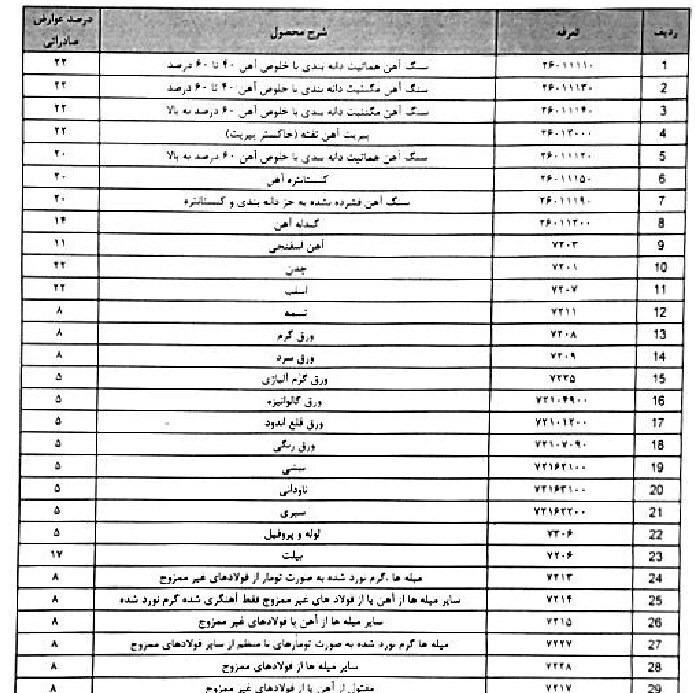 ردیف تعرفه شرح محصول درصد عوارض صادراتی
1 ۲۶۰۱۱۱۱۰ سنگ آهن هماتیت دانه بندی با خلوص آهن ۴۰ تا ۶۰ درصد ۲۲
2 ۲۶۰۱۱۱۳۰ سنگ آهن مگنتیت دانه بندی با خلوص آهن ۴۰ تا ۶۰ درصد ۲۲
3 ۲۶۰۱۱۱۴۰ سنگ آهن مگنتیت دانه بندی با خلوص آهن ۶۰ درصد به بالا ۲۲
4 ۲۶۰۱۲۰۰۰ پیریت آهن تفته (خاکستر پیریت) ۲۲
5 ۲۶۰۱۱۱۲۰ سنگ آهن هماتیت دانه بندی با خلوص آهن ۶۰ درصد به بالا ۲۰
6 ۲۶۰۱۱۱۵۰ کنسانتره آهن ۲۰
7 ۲۶۰۱۱۱۹۰ سنگ آهن فشرده نشده به جز دانه بندی و کنسانتره ۲۰
8 ۲۶۰۱۱۲۰۰ گندله آهن ۱۴
9 ۷۲۰۳ آهن اسفنجی ۱۱
10 ۷۲۰۱ چدن ۲۲
11 ۷۲۰۷ اسلب ۲۲
12 ۷۲۱۱ تسمه ۸
13 ۷۲۰۸ ورق گرم ۸
14 ۷۲۰۹ ورق سرد ۸
15 ۷۲۲۵ ورق گرم آلیاژی ۵
16 ۷۲۱۰۴۹۰۰ ورق گالوانیزه ۵
17 ۷۲۱۰۱۲۰۰ ورق قلع اندود ۵
18 ۷۲۱۰۷۰۹۰ ورق رنگی ۵
19 ۷۲۱۶۲۱۰۰ نبشی ۵
20 ۷۲۱۶۳۱۰۰ ناودانی ۵
21 ۷۲۱۶۲۲۰۰ سپری ۵
22 ۷۳۰۶ لوله و پروفیل ۵
23 ۷۲۰۶ بیلت ۱۷
24 ۷۲۱۳ میله ها ،گرم نورد شده به صورت تومار از فولادهای غیر ممزوج ۸
25 ۷۲۱۴ سایر میله ها از آهن یا از فولاد های غیر ممزوج فقط آهنگری شده گرم نورد شده ۸
26 ۷۲۱۵ سایر میله ها از آهن یا فولادهای غیر ممزوج ۸
27 ۷۲۲۷ میله ها گرم نورد شده به صورت تومارهای نا منظم از سایر فولادهای ممزوج ۸
28 ۷۲۲۸ سایر میله ها از فولادهای ممزوج ۸
29 ۷۲۱۷ مفتول از آهن یا از فولادهای غیر ممزوج ۸